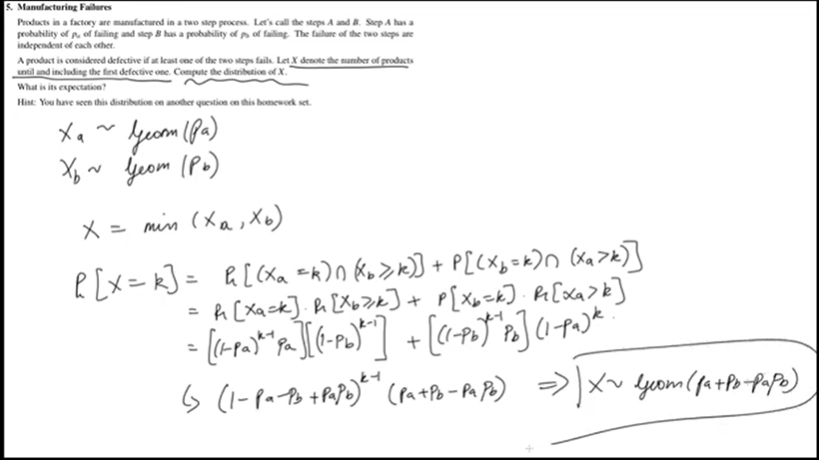 5. Manufacturing Failures
Products in a factory are manufactured in a two step process. Let's call the steps A and B. Step A has a
probability of pₐ of failing and step B has a probability of p_b of failing. The failure of the two steps are
independent of each other.
A product is considered defective if at least one of the two steps fails. Let X denote the number of products
until and including the first defective one. Compute the distribution of X.
What is its expectation?
Hint: You have seen this distribution on another question on this homework set.
X_a ~ Geom (P_a)
X_b ~ Geom (P_b)
X = min (X_a, X_b)
P_r[X = k] = P_r[(X_a = k) ∩ (X_b ≥ k)] + P[(X_b = k) ∩ (X_a > k)]
= P_r[X_a = k] · P_r[X_b ≥ k] + P[X_b = k] · P_r[X_a > k]
= [(1-P_a)^{k-1} P_a][(1-P_b)^{k-1}] + [(1-P_b)^{k-1} P_b] (1-P_a)^k .
↳ (1 - P_a - P_b + P_aP_b)^{k-1} (P_a + P_b - P_a P_b) ⇒ X ~ Geom (P_a + P_b - P_aP_b)